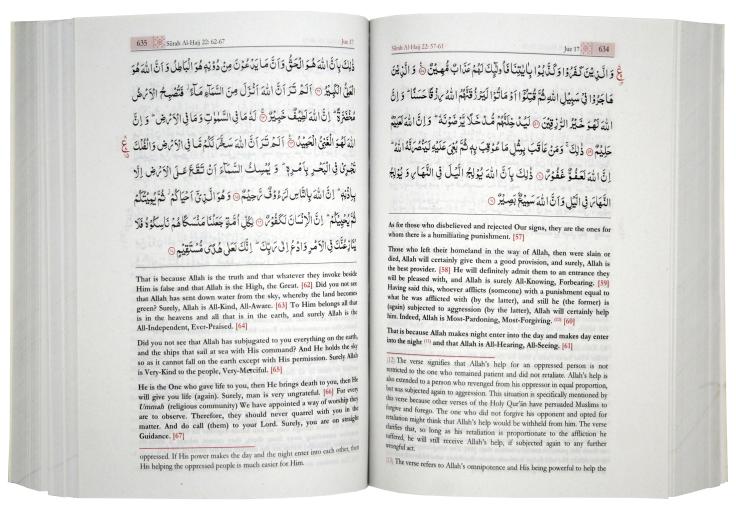 Sūrah Al-Hajj 22: 57-61 Juz 17 634
وَ الَّذِيْنَ كَفَرُوْا وَكَذَّبُوْا بِاٰيٰتِنَا فَاُولٰٓئِكَ لَهُمْ عَذَابٌ مُّهِيْنٌ ۝ وَ الَّذِيْنَ
هَاجَرُوْا فِيْ سَبِيْلِ اللّٰهِ ثُمَّ قُتِلُوْۤا اَوْ مَاتُوْا لَيَرْزُقَنَّهُمُ اللّٰهُ رِزْقًا حَسَنًا ؕ وَ اِنَّ
اللّٰهَ لَهُوَ خَيْرُ الرّٰزِقِيْنَ ۝ لَيُدْخِلَنَّهُمْ مُّدْخَلًا يَّرْضَوْنَهٗ ؕ وَ اِنَّ اللّٰهَ لَعَلِيْمٌ
حَلِيْمٌ ۝ ذٰلِكَ ۚ وَمَنْ عَاقَبَ بِمِثْلِ مَا عُوْقِبَ بِهٖ ثُمَّ بُغِيَ عَلَيْهِ لَيَنْصُرَنَّهُ اللّٰهُ ؕ
اِنَّ اللّٰهَ لَعَفُوٌّ غَفُوْرٌ ۝ ذٰلِكَ بِاَنَّ اللّٰهَ يُوْلِجُ الَّيْلَ فِي النَّهَارِ وَ يُوْلِجُ
النَّهَارَ فِي الَّيْلِ وَاَنَّ اللّٰهَ سَمِيْعٌۢ بَصِيْرٌ ۝
As for those who disbelieved and rejected Our signs, they are the ones for
whom there is a humiliating punishment. [57]
Those who left their homeland in the way of Allah, then were slain or
died, Allah will certainly give them a good provision, and surely, Allah is
the best provider. [58] He will definitely admit them to an entrance they
will be pleased with, and Allah is surely All-Knowing, Forbearing. [59]
Having said this, whoever afflicts (someone) with a punishment equal to
what he was afflicted with (by the latter), and still he (the former) is
(again) subjected to aggression (by the latter), Allah will certainly help
him. Indeed, Allah is Most-Pardoning, Most-Forgiving. (12) [60]
That is because Allah makes night enter into the day and makes day enter
into the night (13) and that Allah is All-Hearing, All-Seeing. [61]
(12) The verse signifies that Allah's help for an oppressed person is not
restricted to the one who remained patient and did not retaliate. Allah's help is
also extended to a person who revenged from his oppressor in equal proportion,
but was subjected again to aggression. This situation is specifically mentioned by
this verse because other verses of the Holy Qur'ān have persuaded Muslims to
forgive and forego. The one who did not forgive his opponent and opted for
retaliation might think that Allah's help would be withheld from him. The verse
clarifies that, so long as his retaliation is proportionate to the affliction he
suffered, he will still receive Allah's help, if subjected again to any further
wrongful act.
(13) The verse refers to Allah's omnipotence and His being powerful to help the
635 Sūrah Al-Hajj 22: 62-67 Juz 17
ذٰلِكَ بِاَنَّ اللّٰهَ هُوَ الْحَقُّ وَاَنَّ مَا يَدْعُوْنَ مِنْ دُوْنِهٖ هُوَ الْبَاطِلُ وَاَنَّ اللّٰهَ هُوَ
الْعَلِيُّ الْكَبِيْرُ ۝ اَلَمْ تَرَ اَنَّ اللّٰهَ اَنْزَلَ مِنَ السَّمَآءِ مَآءً ؗ فَتُصْبِحُ الْاَرْضُ
مُخْضَرَّةً ؕ اِنَّ اللّٰهَ لَطِيْفٌ خَبِيْرٌ ۝ لَهٗ مَا فِي السَّمٰوٰتِ وَمَا فِي الْاَرْضِ ؕ وَ اِنَّ
اللّٰهَ لَهُوَ الْغَنِيُّ الْحَمِيْدُ ۝ اَلَمْ تَرَ اَنَّ اللّٰهَ سَخَّرَ لَكُمْ مَّا فِي الْاَرْضِ وَالْفُلْكَ
تَجْرِيْ فِي الْبَحْرِ بِاَمْرِهٖ ؕ وَ يُمْسِكُ السَّمَآءَ اَنْ تَقَعَ عَلَى الْاَرْضِ اِلَّا
بِاِذْنِهٖ ؕ اِنَّ اللّٰهَ بِالنَّاسِ لَرَءُوْفٌ رَّحِيْمٌ ۝ وَ هُوَ الَّذِيْۤ اَحْيَاكُمْ ؗ ثُمَّ يُمِيْتُكُمْ
ثُمَّ يُحْيِيْكُمْ ؕ اِنَّ الْاِنْسَانَ لَكَفُوْرٌ ۝ لِكُلِّ اُمَّةٍ جَعَلْنَا مَنْسَكًا هُمْ نَاسِكُوْهُ فَلَا
يُنَازِعُنَّكَ فِي الْاَمْرِ وَادْعُ اِلٰى رَبِّكَ ؕ اِنَّكَ لَعَلٰى هُدًى مُّسْتَقِيْمٍ ۝
That is because Allah is the truth and that whatever they invoke beside
Him is false and that Allah is the High, the Great. [62] Did you not see
that Allah has sent down water from the sky, whereby the land becomes
green? Surely, Allah is All-Kind, All-Aware. [63] To Him belongs all that
is in the heavens and all that is in the earth, and surely Allah is the
All-Independent, Ever-Praised. [64]
Did you not see that Allah has subjugated to you everything on the earth,
and the ships that sail at sea with His command? And He holds the sky
so as it cannot fall on the earth except with His permission. Surely Allah
is Very-Kind to the people, Very-Merciful. [65]
He is the One who gave life to you, then He brings death to you, then He
will give you life (again). Surely, man is very ungrateful. [66] For every
Ummah (religious community) We have appointed a way of worship they
are to observe. Therefore, they should never quarrel with you in the
matter. And do call (them) to your Lord. Surely, you are on straight
Guidance. [67]
oppressed. If His power makes the day and the night enter into each other, then
His helping the oppressed people is much easier for Him.